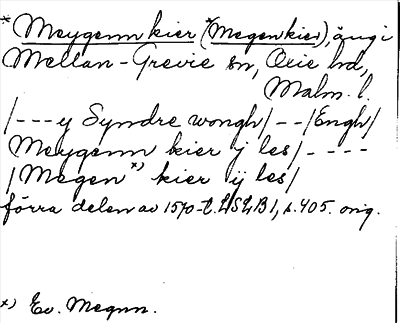 * Meygenn kier (*Megen kier), äng i
Mellan-Grevie sn, Oxie hd,
Malm. l.
/---y Syndre wongh/--/Engh/
Meygenn kier j les/----
/Megen x) kier ij les/
förra delen av 1570-t. LSLB1, s. 405. orig.
x) Ev. Megnn.